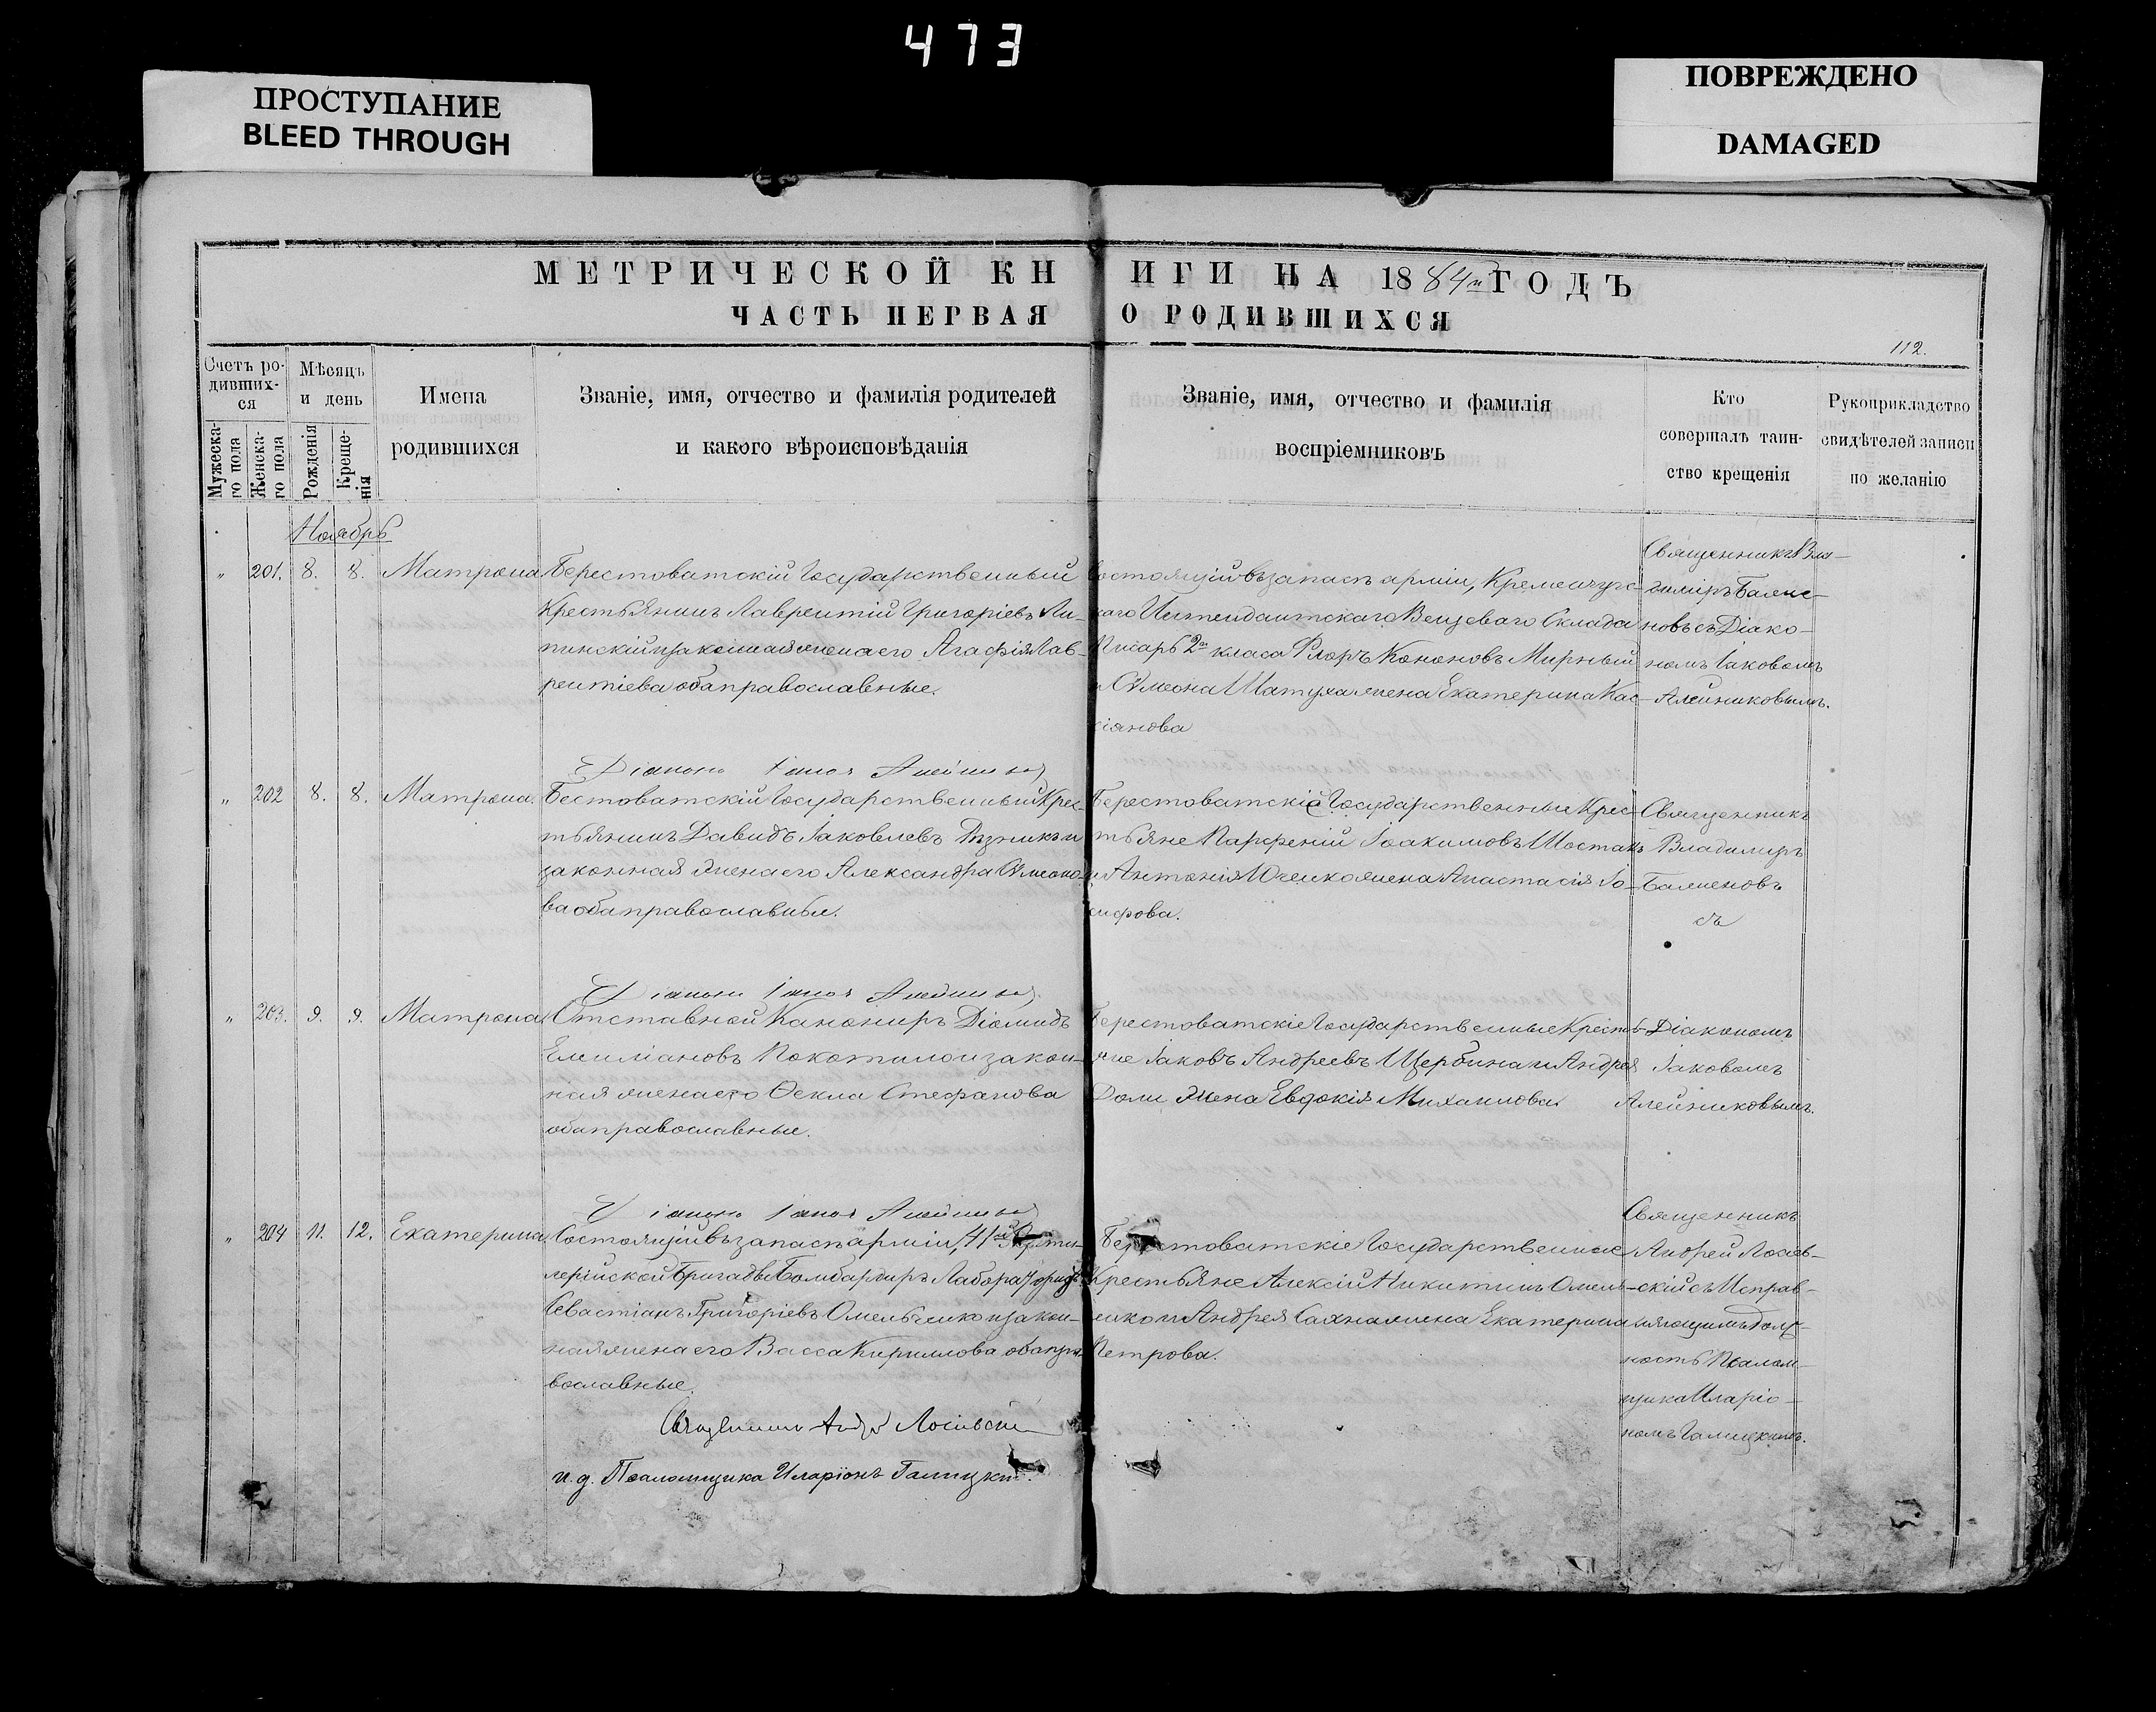 473
ПРОСТУПАНИЕ
BLEED THROUGH
ПОВРЕЖДЕНО
DAMAGED
МЕТРИЧЕСКОЙ КНИГИ НА 1884й ГОДЪ
ЧАСТЬ ПЕРВАЯ О РОДИВШИХСЯ
112.
Счетъ ро-
дивших-
ся
Мужеска-
го пола
Женска-
го пола
Мѣсяцъ
и день
Рожденія
Креще-
нія
Имена
родившихся
Званіе, имя, отчество и фамилія родителей
и какого вѣроисповѣданія
Званіе, имя, отчество и фамилія
воспріемниковъ
Кто
совершалъ таин-
ство крещенія
Рукоприкладство
свидѣтелей записи
по желанію
Ноябрь
" 201. 8. 8. Матрона
Берестоватскій Государственный
Крестьянинъ Лаврентій Григоріевъ Ли-
пинскій и законная жена его Агафія Лав-
рентіева оба православные.
состоящій въ запасѣ арміи, Кременчугс-
каго Интендантскаго Вещеваго Склада
Писарь 2го класса Флоръ Кононовъ Мирный
и Сѵмеона Шатуха жена Екатерина Кас-
сіянова
Священникъ Вла-
диміръ Балже-
новъ съ Діако-
номъ Іаковомъ
Алейниковымъ.
Діаконъ Іаковъ Алейниковъ
" 202 8. 8. Матрона.
Бестоватскій Государственный Крес-
тьянинъ Давидъ Іаковлевъ Рѣзникъ и
законная жена его Александра Сѵмеоно-
ва оба православные.
Берестоватскіе Государственные Крес-
тьяне Парфеній Іоакимовъ Шостакъ
и Антонія Юченко жена Анастасія Іо-
сифова.
Священникъ
Владиміръ
Балженовъ
съ
Діаконъ Іаковъ Алейниковъ
" 203. 9. 9. Матрона
Отставной Канониръ Діомидъ
Емиліановъ Покотило и закон-
ная жена его Ѳекла Стефанова
оба православные.
Берестоватскіе Государственные Кресть-
яне Іаковъ Андреевъ Щербина и Андрея
Доли жена Евдокія Михаилова.
Діакономъ
Іаковомъ
Алейниковымъ.
Діаконъ Іаковъ Алейниковъ
" 204 11. 12. Екатерина
Состоящій въ запасѣ арміи, 41й Артил-
лерійской Бригады Бомбардиръ Лаборатористъ
Севастіанъ Григоріевъ Омельченко и закон-
ная жена его Васса Кириллова оба пра-
вославные.
Берестоватскіе Государственные
Крестьяне Алексій Никитинъ Омель-
ченко и Андрея Сахна жена Екатерина
Петрова.
Священникъ
Андрей Лосіев-
скій съ Исправ-
ляющимъ долж-
ность Псалом-
щика Иларіо-
номъ Галицкимъ.
Священникъ Андрей Лосіевскій
и. д. Псаломщика Иларіонъ Галицкій.